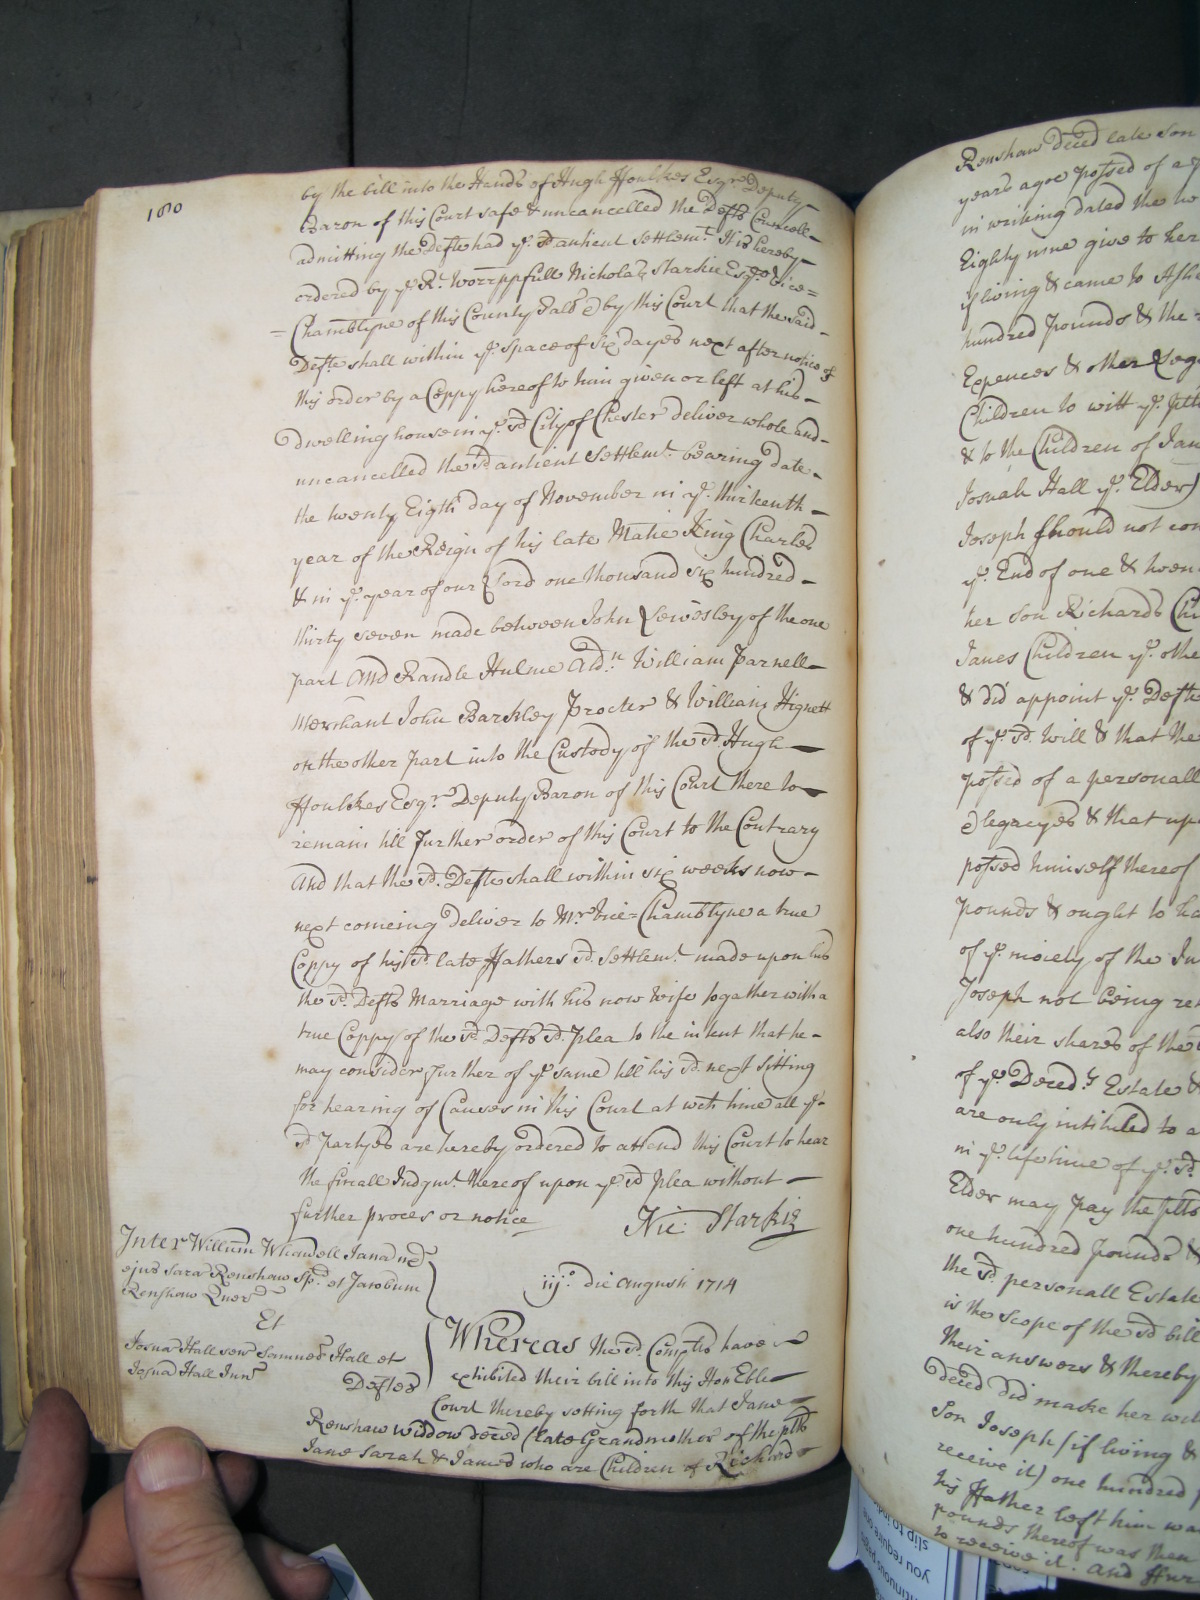 180
by the bill into the Hands of Hugh Ffoulkes Esqr. Deputy
Baron of this Court safe & uncancelled the Defts Councell
admitting the Defte had ye. sd antient settlemt. It is hereby
ordered by ye Rt. Worrppfull Nicholas Starkie Esqr Vice=
=Chamblyne of this County Palb & by this Court that the said
Defte shall within ye. space of six dayes next after notice of
this order by a Coppy hereof to him given or left at his
dwelling house in ye. sd City of Chester deliver whole and
uncancelled the sd antient Settlemt. bearing date
the twenty Eigth day of November in ye. thirteenth
year of the Reign of his late Matie King Charles
& in ye. year of our Lord one thousand six hundred
thirty seven made between John Lewesley of the one
part And Randle Hulme Ald.n William Parnell
Merchant John Barkley Procter & William Hignett
on the other part into the Custody of the sd Hugh
Ffoulkes Esqr. Deputy Baron of this Court there to
remain till further order of this Court to the Contrary
And that the sd. Defte shall within six weeks now
next comeing deliver to Mr. Vice=Chamblyne a true
Coppy of his sd. late Ffathers sd. Settlemt. made upon his
the sd. Defts Marriage with his now Wife togather with a
true Coppy of the sd. Defts sd. plea to the intent that he
may consider further of ye same till his sd. next sitting
for hearing of Causes in this Court at wch time all ye.
sd partyes are hereby ordered to attend this Court to hear
the finall Judgmt. thereof upon ye sd plea without
further proces or notice
Nic: Starkie
Inter Willum Jana
ejus Sara Renshaw Sp. et Jacobum
Renshaw Quer
Et
Josua Hall sen Samuel Hall et
Josua Hall Jun
Deftes
iij.o die Augusti 1714
Whereas the sd. Complts have
exhibited their bill into this Hon.Eble
Court thereby setting forth that Jane
Renshaw Widdow deced (late Grandmother of the plts
Jane Sarah & James who are Children of Richard
Renshaw deced late son
years agoe possed of a
in writing dated the
Eighty nine give to her
if living & came to
hundred pounds & the
Expences & other Lega
Children to witt ye. plts
& to the Children of Jan
Josuah Hall ye. Elder)
Joseph should not com
ye. End of one & twen
her son Richards Chi
Janes Children ye. othe
& did appoint ye. Defte
of ye. sd. Will & that the
possed of a personall
& legacyes & that up
possed himself thereof
pounds & ought to ha
of ye. moiety of the
Joseph not being re
also their shares of the
of ye Deced.ts Estate &
are only intituled to a
in ye. lifetime of ye. sd.
Elder may pay the plts
one hundred pounds &
the sd personall Estate
is the scope of the sd bill
their answers & thereby
deced did make her wil
Son Joseph (if living &
receive it) one hundred
his Ffather left him was
pounds thereof was then
to receive it. And
slip to
you require